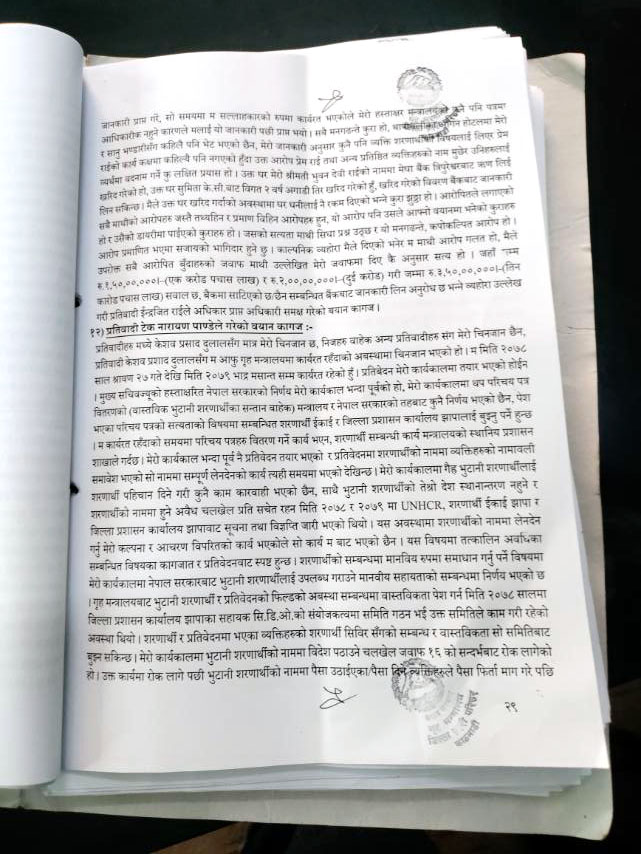 जानकारी प्राप्त गरें, सो समयमा म सल्लाहकारको रुपमा कार्यरत भएकोले मेरो हस्ताक्षर मन्त्रालयको कुनै पनि पत्रमा
आधिकारीक नहुने कारणले मलाई यो जानकारी पछी प्राप्त भयो। सबै मनगढन्ते कुरा हो, होटलमा मेरो
र सानु भण्डारीसँग कहिले पनि भेट भएको छैन, मेरो जानकारी अनुसार कुनै पनि व्यक्ति शरणार्थीको विषयलाई लिएर प्रेम
राईको कार्य कक्षमा कहिल्यै पनि नगएको हुँदा उक्त आरोप प्रेम राई तथा अन्य प्रतिष्ठित व्यक्तिहरुको नाम मुछेर उनिहरुलाई
व्यर्थमा बदनाम गर्ने कु लक्षित प्रयास हो। उक्त घर मेरो श्रीमती भुवन देवी राईको नाममा मेघा बैंक त्रिपुरेश्वरबाट ऋण लिई
खरिद गरेको हो, उक्त घर सुमिता के.सी.बाट विगत २ वर्ष अगाडी तिर खरिद गरेको हुँ, खरिद गरेको विवरण बैंकबाट जानकारी
लिन सकिन्छ। मैले उक्त घर खरिद गर्दाको अवस्थामा घर धनीलाई नै रकम दिएको भन्ने कुरा झुठ्ठा हो। आरोपितले लगाएको
सबै माथीको आरोपहरु जस्तै तथ्यहिन र प्रमाण विहिन आरोपहरु हुन, यो आरोप पनि उसले आफ्नो वयानमा भनेको कुराहरु
हो र उसैको डायरीमा पाईएको कुराहरु हो। जसको सत्यता माथी सिधा प्रश्न उठ्छ र यो मनगढन्ते, कपोकल्पित आरोप हो।
आरोप प्रमाणित भएमा सजायको भागिदार हुने छु। काल्पनिक व्यहोरा मैले दिएको भनेर म माथी आरोप गलत हो, मैले
उपरोक्त सबै आरोपित बुँदाहरुको जवाफ माथी उल्लेखित मेरो जवाफमा दिए कै अनुसार सत्य हो। जहाँ सम्म
रु.१,५०,००,०००।–(एक करोड पचास लाख) र रु.२,००,००,०००।–(दुई करोड) गरी जम्मा रु.३,५०,००,०००।–(तिन
करोड पचास लाख) सवाल छ, बैंकमा साटिएको छ/छैन सम्बन्धित बैंकबाट जानकारी लिन अनुरोध छ भन्ने व्यहोरा उल्लेख
गरी प्रतिवादी ईन्द्रजित राईले अधिकार प्राप्त अधिकारी समक्ष गरेको बयान कागज।
१२) प्रतिवादी टेक नारायण पाण्डेले गरेको बयान कागज :-
प्रतिवादीहरु मध्ये केशव प्रसाद दुलालसँग मात्र मेरो चिनजान छ, निजहरु बाहेक अन्य प्रतिवादीहरु संग मेरो चिनजान छैन,
प्रतिवादी केशव प्रशाद दुलालसँग म आफु गृह मन्त्रालयमा कार्यरत रहँदाको अवस्थामा चिनजान भएको हो। म मिति २०७८
साल श्रावण २७ गते देखि मिति २०७९ भाद्र मसान्त सम्म कार्यरत रहेको हुँ। प्रतिबेदन मेरो कार्यकालमा तयार भएको होईन
। मुख्य सचिवज्यूको हस्ताक्षरित नेपाल सरकारको निर्णय मेरो कार्यकाल भन्दा पूर्वको हो, मेरो कार्यकालमा थप परिचय पत्र
वितरणको (वास्तविक भुटानी शरणार्थीका सन्तान बाहेक) मन्त्रालय र नेपाल सरकारको तहबाट कुनै निर्णय भएको छैन, पेश
भएका परिचय पत्रको सत्यताको विषयमा सम्बन्धित शरणार्थी ईकाई र जिल्ला प्रशासन कार्यालय झापालाई बुझ्नु पर्ने हुन्छ
। म कार्यरत रहँदाको समयमा परिचय पत्रहरु वितरण गर्ने कार्य भएन, शरणार्थी सम्बन्धी कार्य मन्त्रालयको स्थानिय प्रशासन
शाखाले गर्दछ। मेरो कार्यकाल भन्दा पूर्व नै प्रतिवेदन तयार भएको र प्रतिवेदनमा शरणार्थीको नाममा व्यक्तिहरुको नामावली
समावेश भएको सो नाममा सम्पूर्ण लेनदेनको कार्य त्यही समयमा भएको देखिन्छ। मेरो कार्यकालमा गैह्र भुटानी शरणार्थीलाई
शरणार्थी पहिचान दिने गरी कुनै काम कारवाही भएको छैन, साथै भुटानी शरणार्थीको तेश्रो देश स्थानान्तरण नहुने र
शरणार्थीको नाममा हुने अवैध चलखेल प्रति सचेत रहन मिति २०७८ र २०७९ मा UNHCR, शरणार्थी ईकाई झापा र
जिल्ला प्रशासन कार्यालय झापावाट सूचना तथा विज्ञप्ति जारी भएको थियो। यस अवस्थामा शरणार्थीको नाममा लेनदेन
गर्नु मेरो कल्पना र आचरण विपरितको कार्य भएकोले सो कार्य म बाट भएको छैन। यस विषयमा तत्कालिन अवधिका
सम्बन्धित विषयका कागजात र प्रतिवेदनवाट स्पष्ट हुन्छ। शरणार्थीको सम्बन्धमा मानविय रुपमा समाधान गर्नु पर्ने विषयमा
मेरो कार्यकालमा नेपाल सरकारबाट भुटानी शरणार्थीलाई उपलब्ध गराउने मानवीय सहायताको सम्बन्धमा निर्णय भएको छ
। गृह मन्त्रालयबाट भुटानी शरणार्थी र प्रतिवेदनको फिल्डको अबस्था सम्बन्धमा वास्तविकता पेश गर्न मिति २०७८ सालमा
जिल्ला प्रशासन कार्यालय झापाका सहायक सि.डि.ओ.को संयोजकत्वमा समिति गठन भई उक्त समितिले काम गरी रहेको
अवस्था थियो। शरणार्थी र प्रतिवेदनमा भएका व्यक्तिहरुको शरणार्थी सिविर सँगको सम्बन्ध र वास्तविकता सो समितिबाट
बुझ्न सकिन्छ। मेरो कार्यकालमा भुटानी शरणार्थीको नाममा विदेश पठाउने चलखेल जवाफ १६ को सन्दर्भबाट रोक लागेको
हो। उक्त कार्यमा रोक लागे पछी भुटानी शरणार्थीको नाममा पैसा उठाईएका/पैसा दिने व्यक्तिहरुले पैसा फिर्ता माग गरे पछि
२९